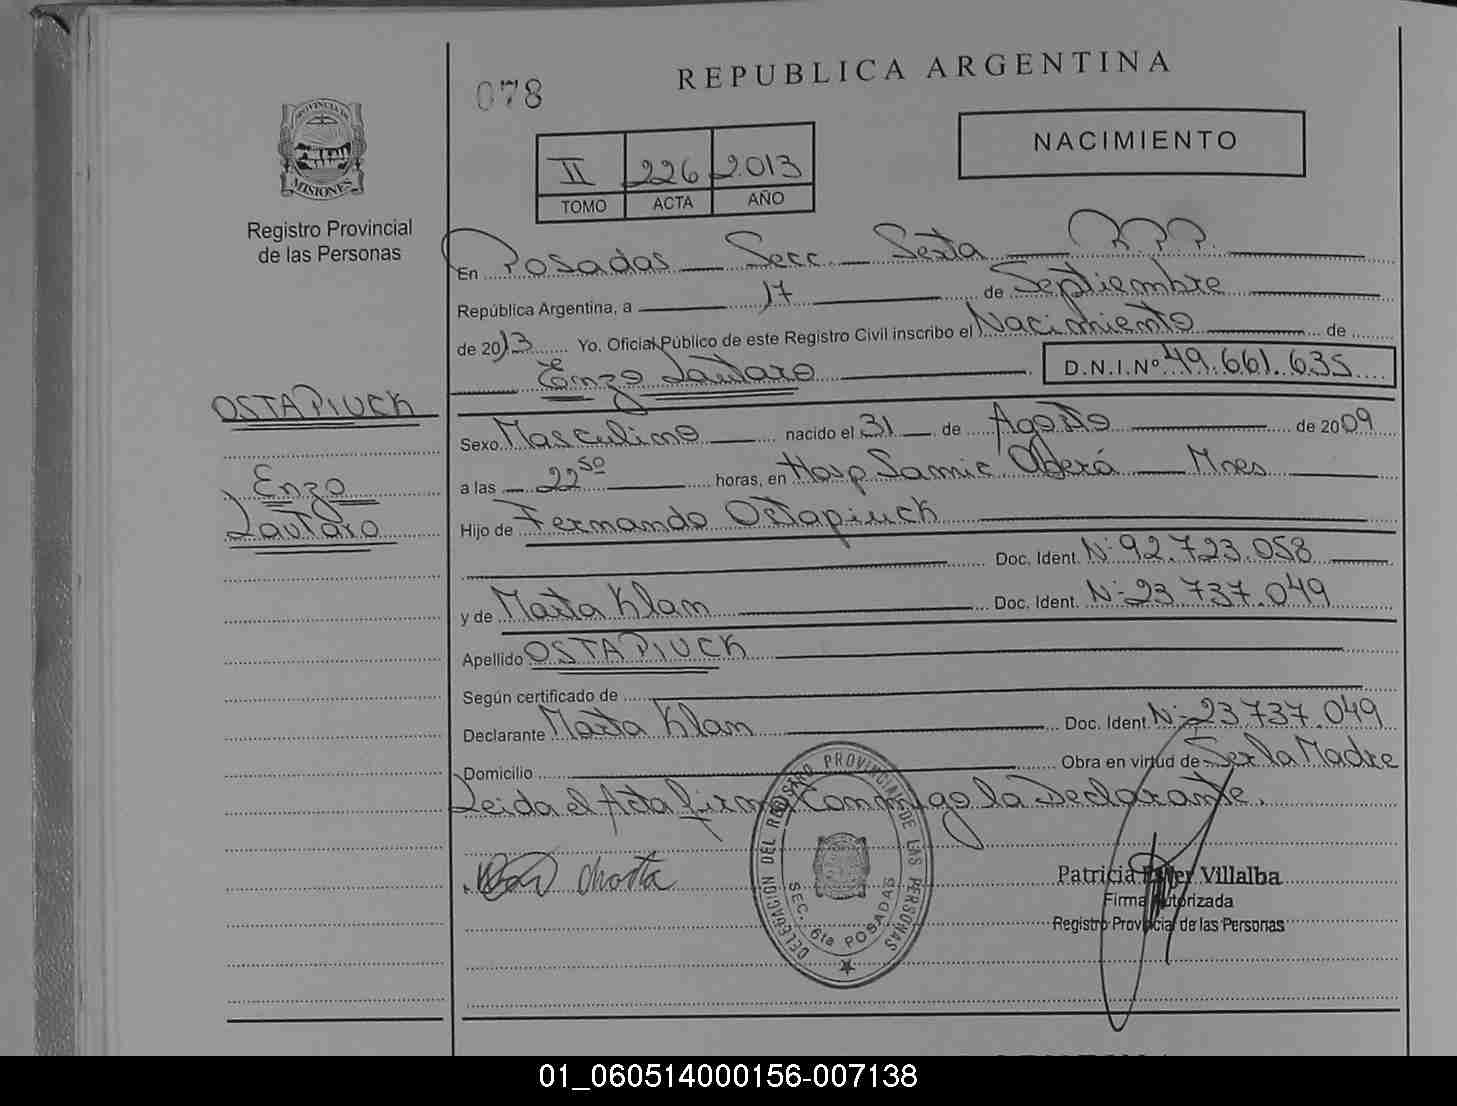 078
REPUBLICA ARGENTINA
NACIMIENTO
II 226 2013
TOMO ACTA AÑO
PROVINCIA DE
MISIONES
Registro Provincial
de las Personas
En Posadas Secc. Sexta
República Argentina, a 17 de Septiembre
de 2013 Yo. Oficial Público de este Registro Civil inscribo el Nacimiento de
Enzo Lautaro D.N.I.Nº 49.661.635
OSTAPIUCK
Enzo
Lautaro
Sexo Masculino nacido el 31 de Agosto de 2009
a las 22⁵⁰ horas, en Hosp Samic Oberá Mnes
Hijo de Fernando Ostapiuck
Doc. Ident. Nº 92.723.058
y de Marta Klam Doc. Ident. Nº 23 737.049
Apellido OSTAPIUCK
Según certificado de
Declarante Marta Klam Doc. Ident. Nº 23 737.049
Domicilio Obra en virtud de Ser la Madre
Leida el Acta firma Conmigo la Declarante.
DELEGACION DEL REGISTRO PROVINCIAL DE LAS PERSONAS
SEC. 6ta POSADAS
Marta
Patricia Villalba
Firma Autorizada
Registro Provincial de las Personas
01_060514000156-007138